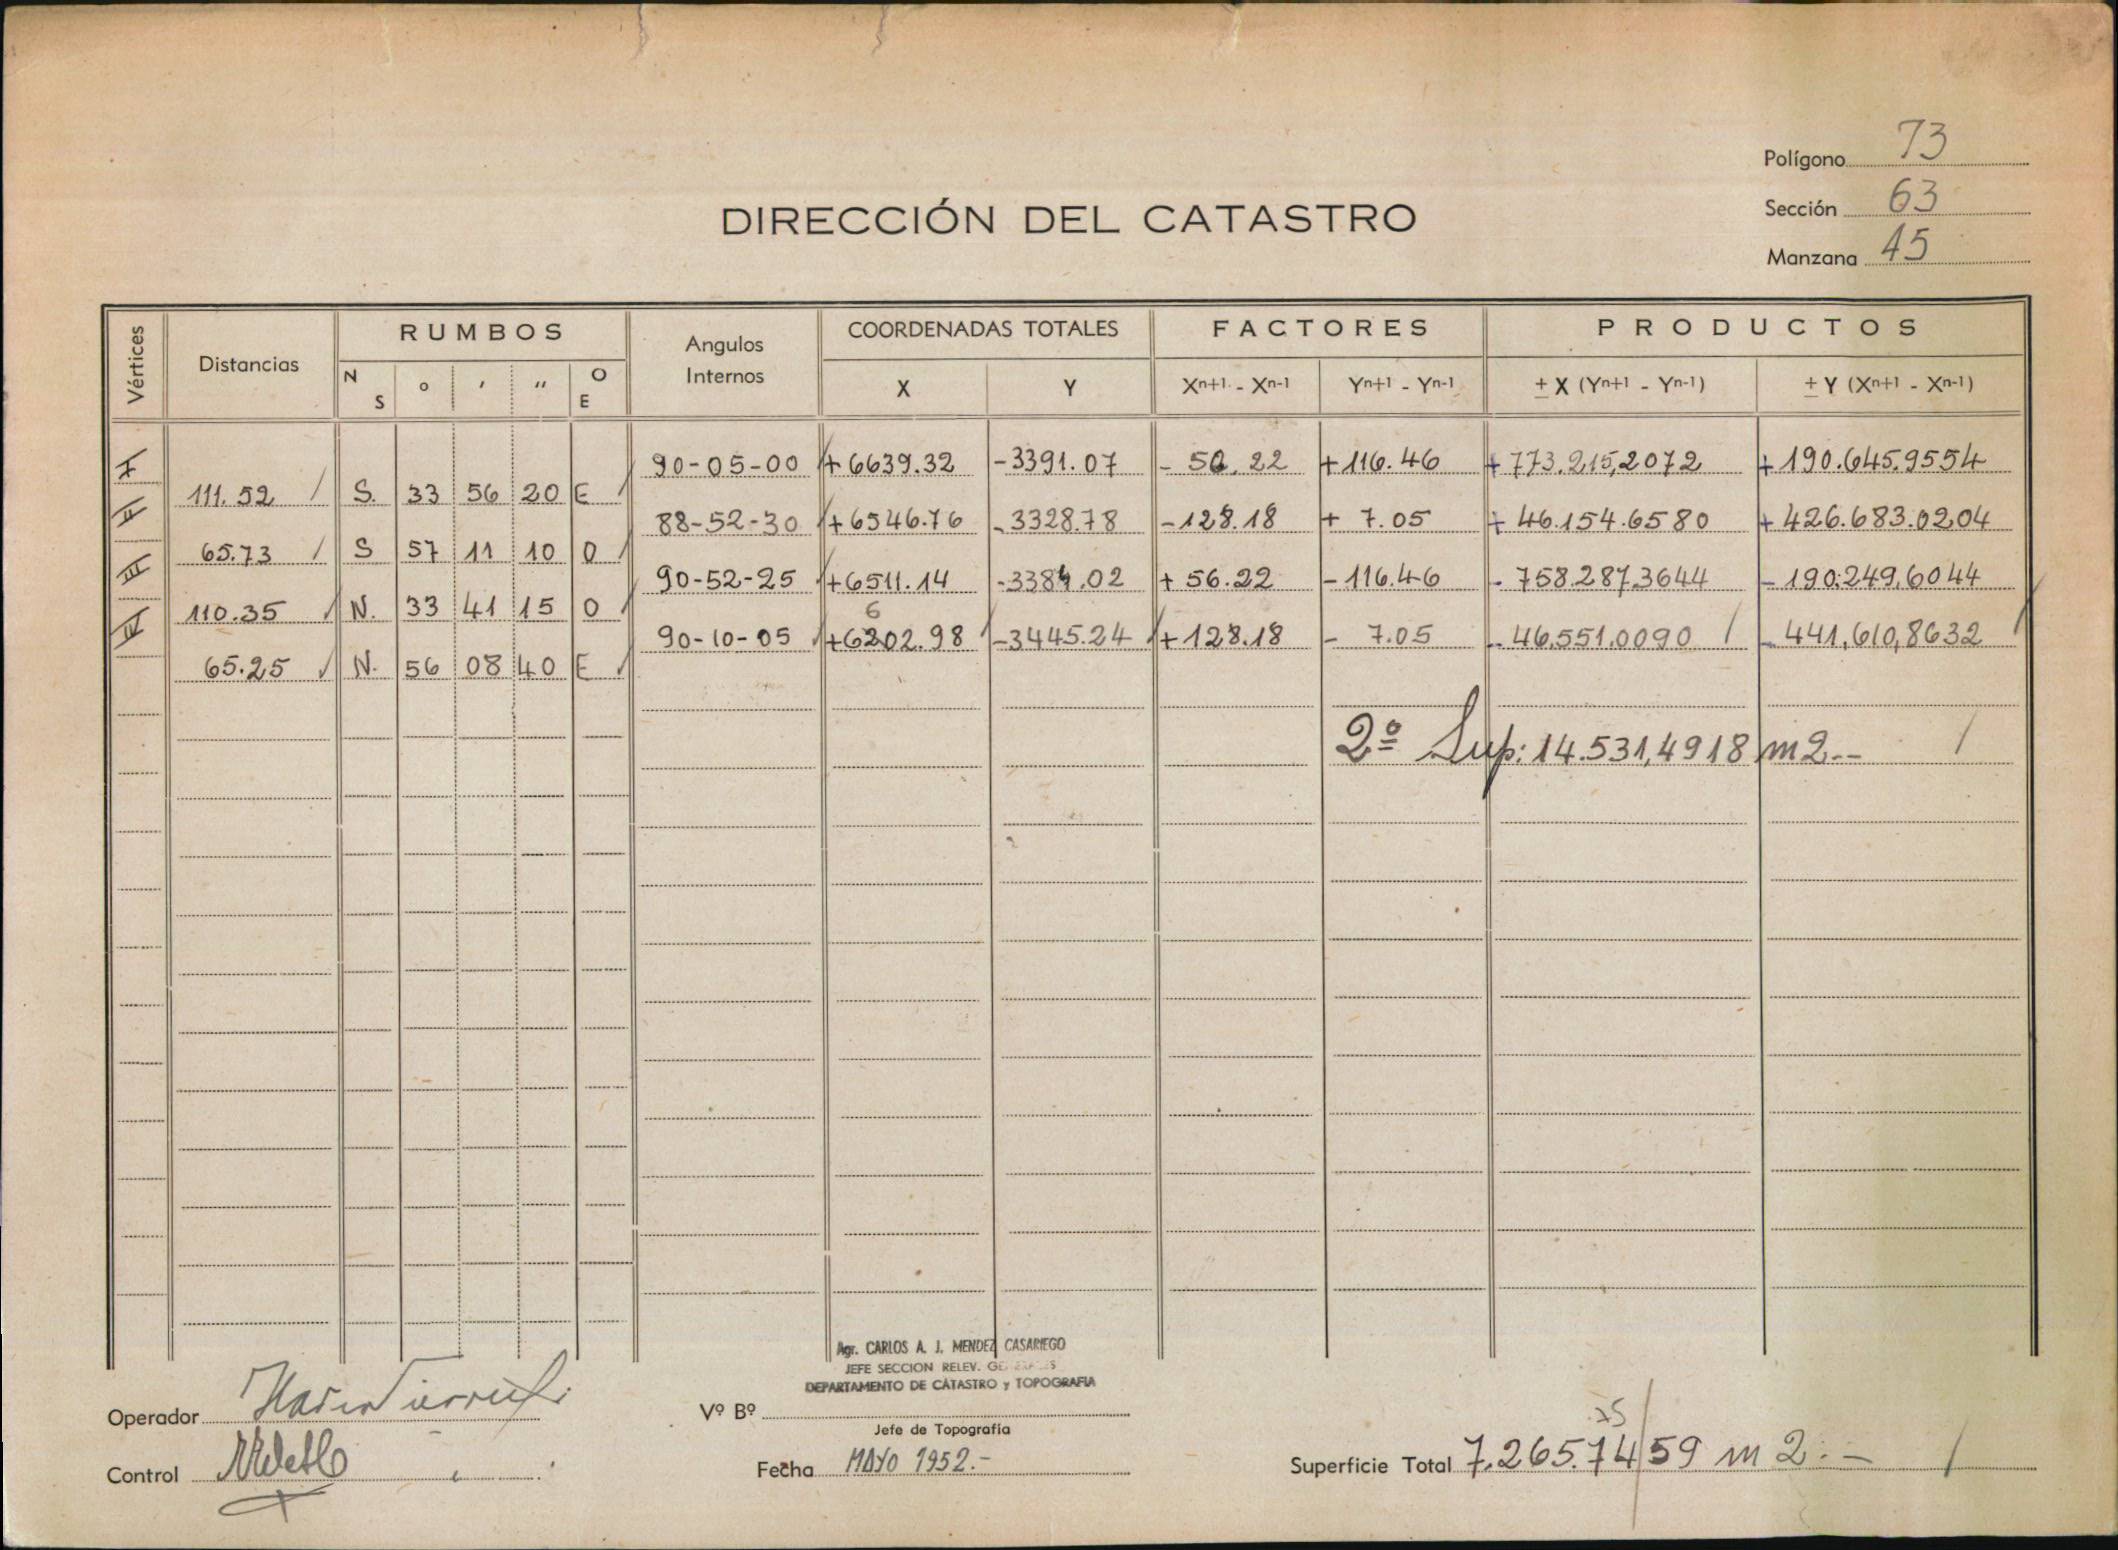 Polígono 73
Sección 63
Manzana 45
DIRECCIÓN DEL CATASTRO
Vértices Distancias RUMBOS Angulos Internos COORDENADAS TOTALES FACTORES PRODUCTOS
N S ° ' " O E X Y Xn+1 - Xn-1 Yn+1 - Yn-1 ± X (Yn+1 - Yn-1) ± Y (Xn+1 - Xn-1)
I 90-05-00 +6639.32 -3391.07 - 56.22 +116.46 +773.215,2072 +190.645.9554
111.52 S. 33 56 20 E
II 88-52-30 +6546.76 -3328.78 -128.18 + 7.05 + 46.154.6580 +426.683.0204
65.73 S 57 11 10 O
III 90-52-25 +6511.14 -3384.02 + 56.22 -116.46 - 758.287.3644 -190.249,6044
110.35 N. 33 41 15 O
6
IV 90-10-05 +6202.98 -3445.24 +128.18 - 7.05 - 46.551.0090 - 441,610,8632
65.25 N. 56 08 40 E
2º Sup: 14.531,4918 m2.--
Agr. CARLOS A. J. MENDEZ CASARIEGO
JEFE SECCION RELEV. GENERALES
DEPARTAMENTO DE CATASTRO y TOPOGRAFIA
Operador
Vº Bº
Jefe de Topografía
Control
Fecha MAYO 1952.-
75
Superficie Total 7.265.74/59 m 2.-